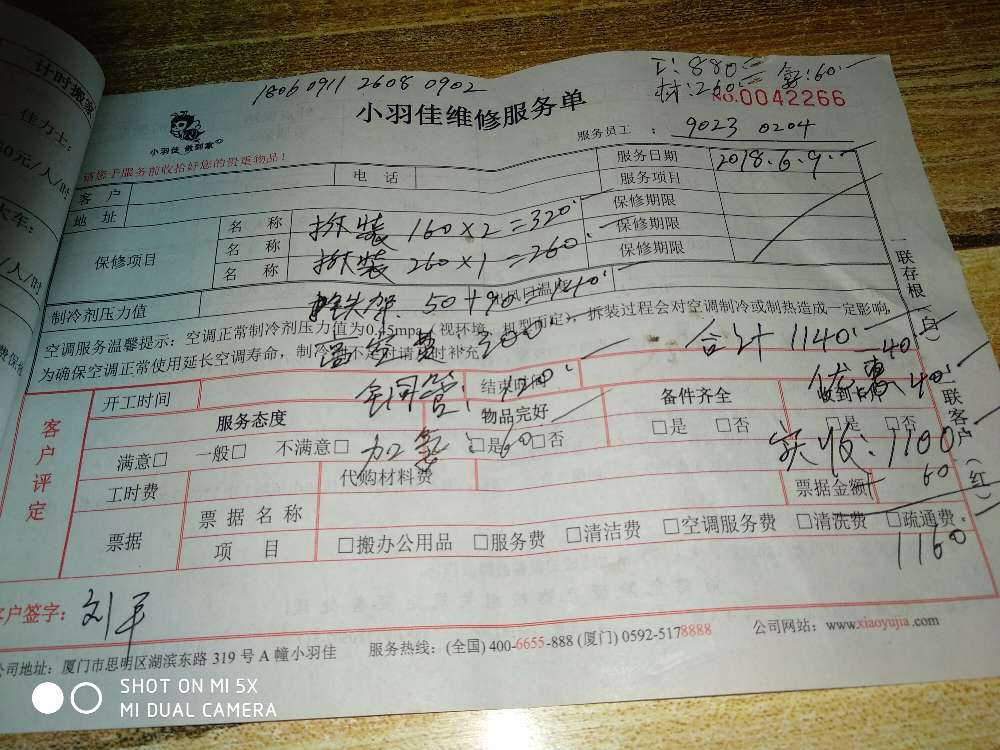 计时搬
佳力士:
0元/人/时
大车:
/人/时
1806 0911 2608 0902
工: 880 氟: 60.
材: 260
小羽佳 做到家
小羽佳维修服务单
NO.0042266
服务员工: 9023 0204
请您于服务前收拾好您的贵重物品!
客户 电话 服务日期 2018.6.9.
地址 服务项目
保修项目
名称 拆装 160×2=320. 保修期限
名称 保修期限
名称 拆装 260×1=260. 保修期限
制冷剂压力值 铁架: 50+90=140
空调服务温馨提示: 空调正常制冷剂压力值为0.45mpa(视环境、机型而定), 拆装过程会对空调制冷或制热造成一定影响,
为确保空调正常使用延长空调寿命, 制冷剂不足时请及时补充 300 合计 1140.
一联存根(白)
二联客户(红)
客户评定
开工时间 铜管: 结束时间 优惠 40.
服务态度 物品完好 备件齐全
满意□ 一般□ 不满意□ 加氟: 60 □是 □否 □是 □否 □是 □否
实收: 1100
工时费 代购材料费 票据金额 60
票据 票据名称
项目 □搬办公用品 □服务费 □清洁费 □空调服务费 □清洗费 □疏通费
1160
客户签字: 刘军
公司地址: 厦门市思明区湖滨东路 319 号 A 幢小羽佳 服务热线: (全国) 400-6655-888 (厦门) 0592-5178888 公司网站: www.xiaoyujia.com
SHOT ON MI 5X
MI DUAL CAMERA